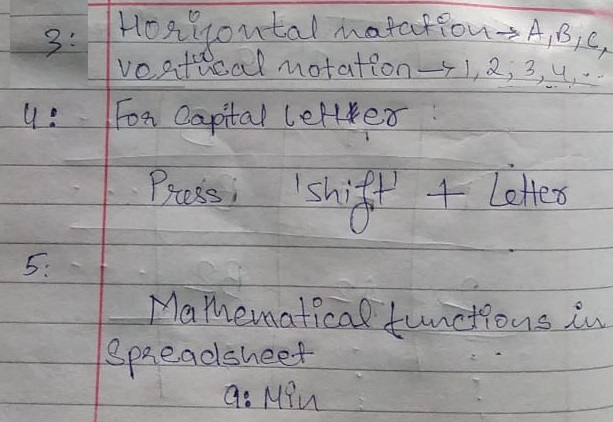 3: Horizontal notation → A, B, C,
vertical notation → 1, 2, 3, 4, ..
4: For Capital Letter :
Press 'shift' + Letter
5:
Mathematical functions in
Spreadsheet
a: Min